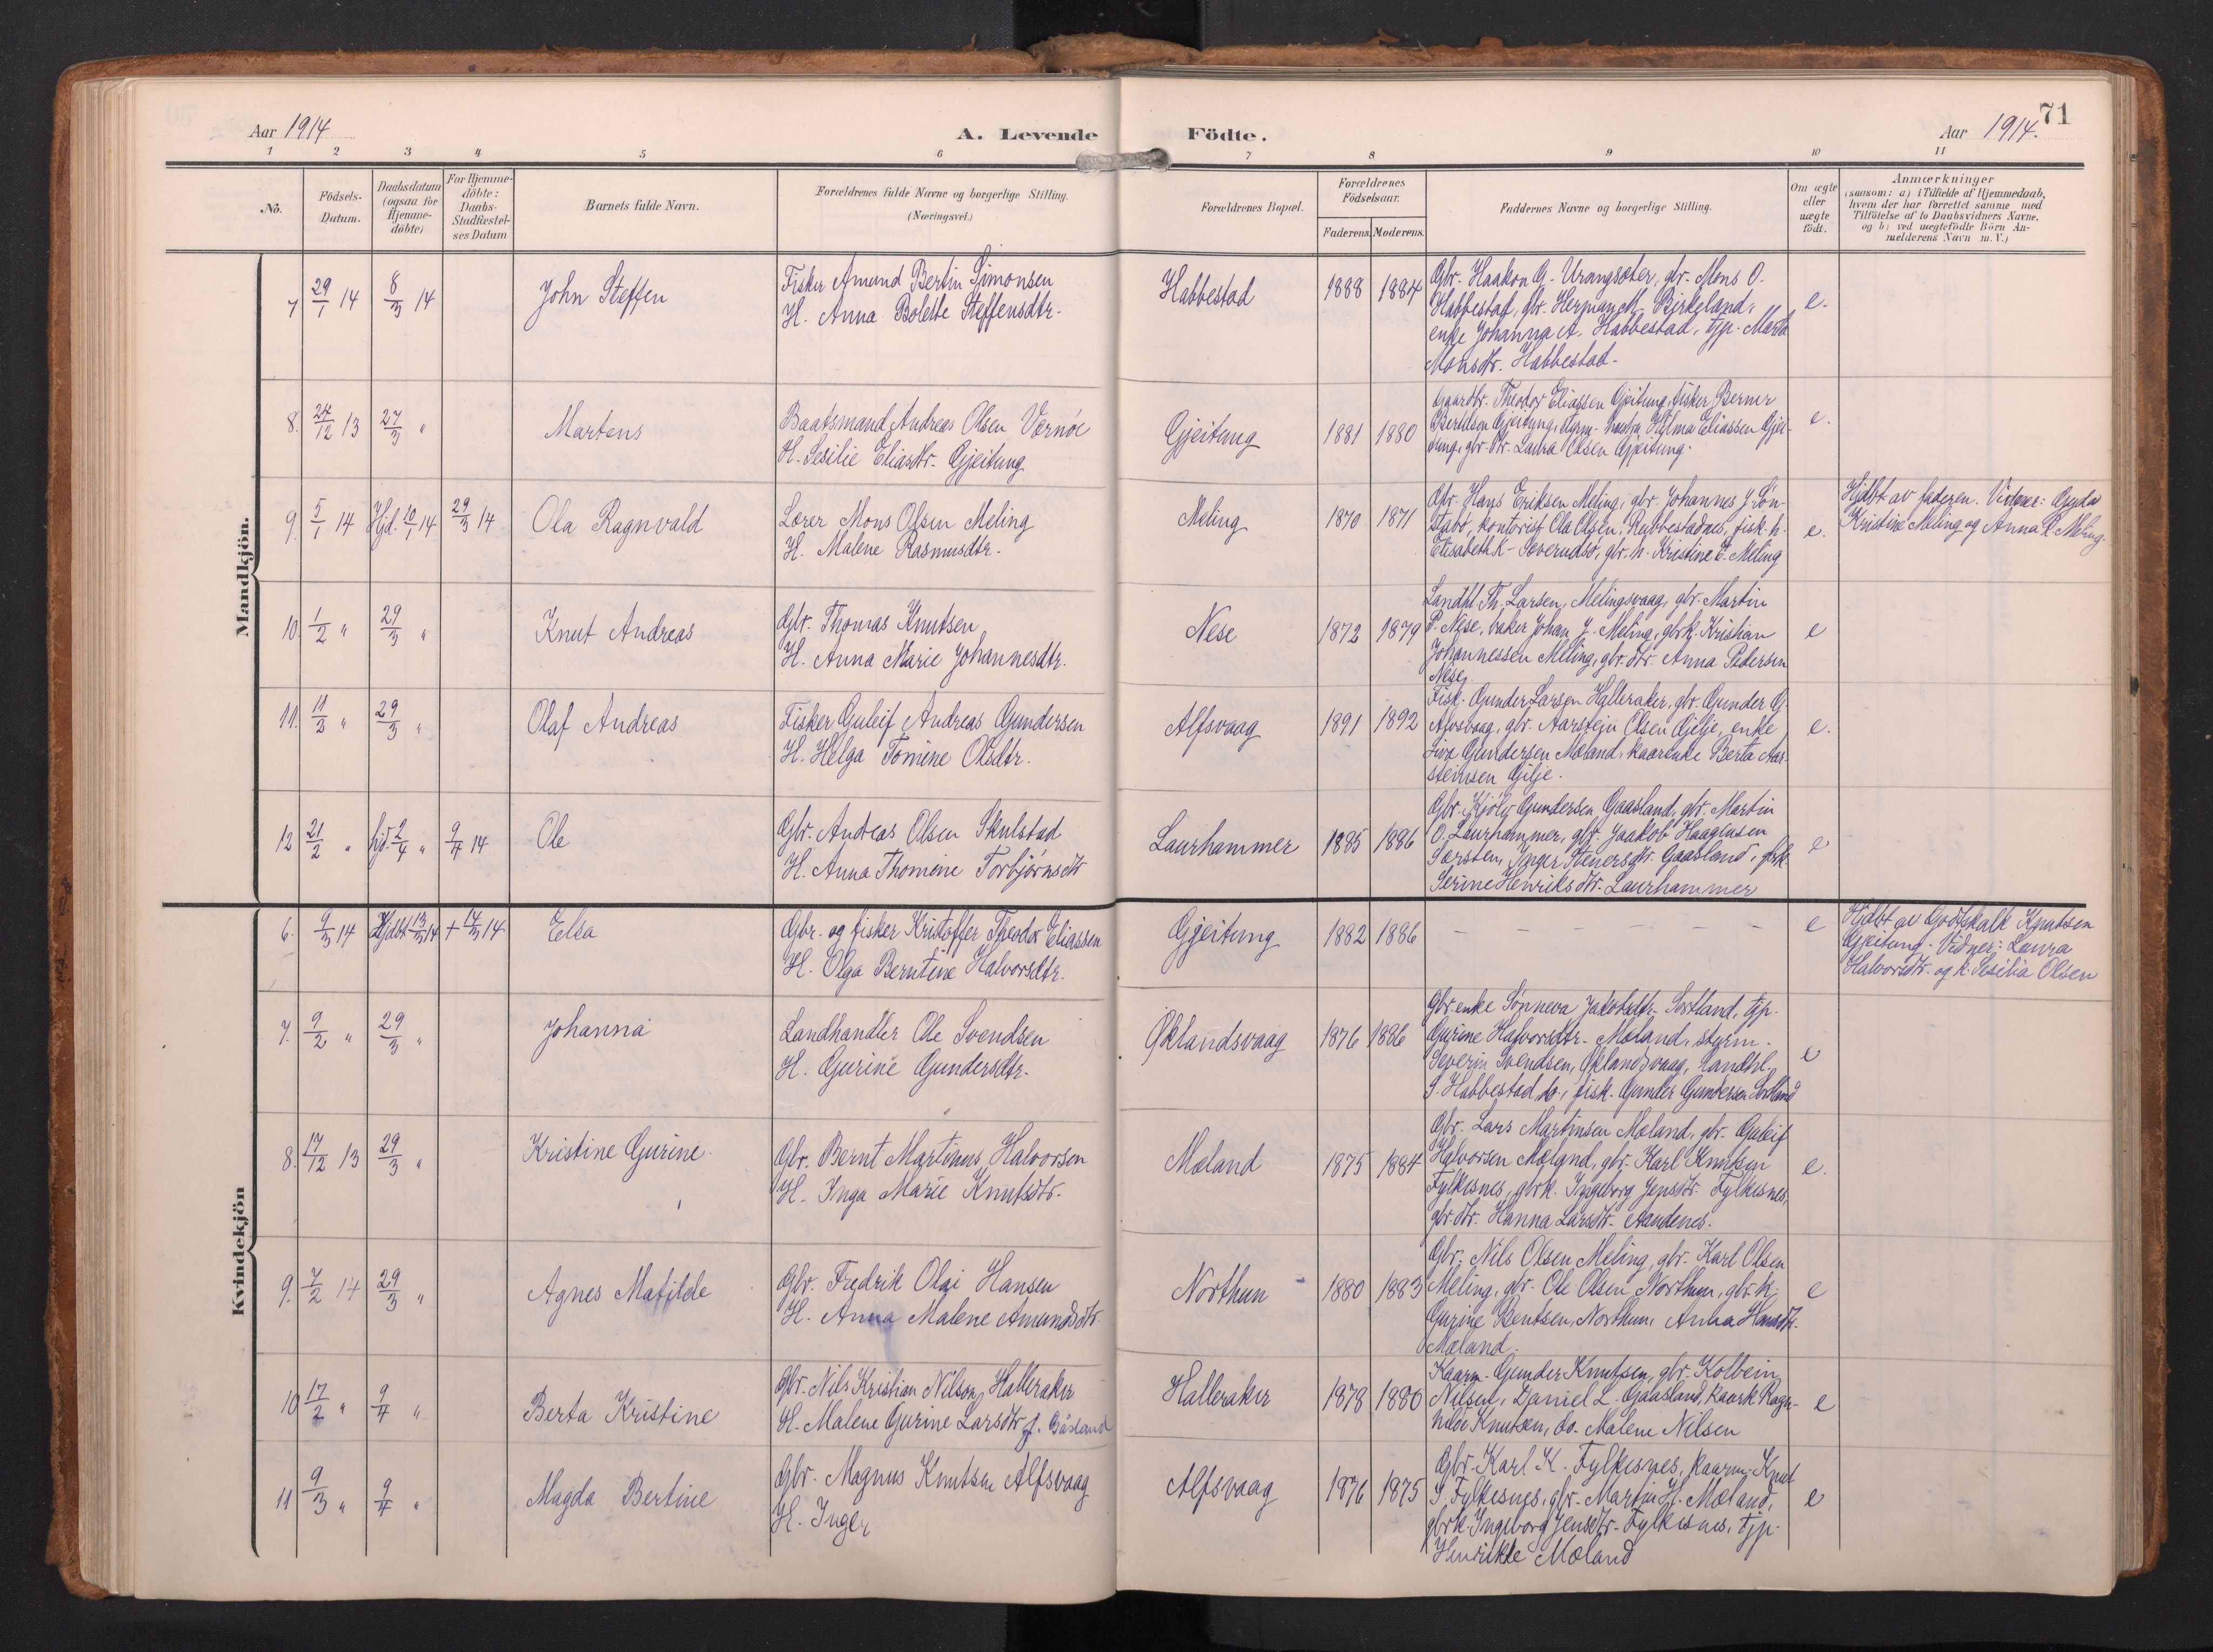 71
Aar 1914
A. Levende Födte.
Aar 1914.
1 2 3 4 5 6 7 8 9 10 11
No.
Födsels-Datum.
Daabsdatum (ogsaa for Hjemme-döbte)
For Hjemme-döbte: Daabs-Stadfæstel-ses Datum
Barnets fulde Navn.
Forældrenes fulde Navne og borgerlige Stilling.
(Næringsvei.)
Forældrenes Bopæl.
Forældrenes Födselsaar.
Faderens. Moderens.
Faddernes Navne og borgerlige Stilling.
Om ægte eller uægte födt.
Anmærkninger
(saasom: a) i Tilfælde af Hjemmedaab,
hvem der har forrettet samme med
Tilföielse af to Daabsvidners Navne,
og b) ved uægtefödte Börn An-
melderens Navn m. V.)
Mandkjön.
7 29/1 14 8/3 14 John Steffen
Fisker Amund Bertin Simonsen
H. Anna Bolette Steffensdtr.
Habbestad 1888 1884
Gbr. Haakon G. Urangsæter, gbr. Mons O.
Habbestad, gbr. Herman M. Birkeland,
enke Johanna A. Habbestad, tjp. Marta
Monsdtr. Habbestad.
e.
8. 24/12 13 27/3 " Martens
Baatsmand Andreas Olsen Værnøe
H. Sesilie Eliasdtr. Gjeitung
Gjeitung 1881 1880
Gaardbr. Theodor Eliassen Gjeitung, fisker Berner
Bertilsen Gjeitung, styrm. hustru Hilma Eliassen Gjei-
tung, gbr. dtr. Laura Olsen Gjeitung.
e.
9. 5/1 14 Hjd. 10/1 14 29/3 14 Ola Ragnvald
Lærer Mons Olsen Meling
H. Malene Rasmusdtr.
Meling 1870 1871
Gbr. Hans Eriksen Meling, gbr. Johannes J. Søn-
stabø, kontorist Ola Olsen, Rubbestadnes, fisk. h.
Elisabeth K. Severudsø, gbr. h. Kristine E. Meling
e.
Hjdbt av faderen. Vidner: Gyda
Kristine Meling og Anna L. Meling.
10. 1/2 " 29/3 " Knut Andreas
Gbr. Thomas Knutsen
H. Anna Marie Johannesdtr.
Nese 1872 1879
Landhl. Th. Larsen, Melingsvaag, gbr. Martin
P. Nese, baker Johan J. Meling, gbrk. Kristian
Johannessen Meling, gbr. dtr. Anna Pedersen
Nese.
e
11. 11/2 " 29/3 " Olaf Andreas
Fisker Guleif Andreas Gundersen
H. Helga Tomine Olsdtr.
Alfsvaag 1891 1892
Fisk. Gunder Larsen Halleraker, gbr. Gunder G.
Alvsvaag, gbr. Aarstein Olsen Gjelje, enke
Siva Gundersen Mæland, kaarenke Berta Aar-
steinsen Gilje.
e.
12 21/2 " hjd. 2/4 " 9/4 14 Ole
Gbr. Andreas Olsen Skulstad
H. Anna Thomine Torbjørnsdtr
Laurhammer 1885 1886
Gbr. Kjøly Gundersen Gaasland, gbr. Martin
O. Laurhammer, gbr. Jaakob Haagensen
Særsten, Inger Steinersdtr. Gaasland, gbrk.
Serine Henriksdtr. Laurhammer
e
Kvindekjön
6. 9/3 14 Hjdbt 13/3 14 + 14/3 14 Elsa
Gbr. og fisker Kristoffer Theodor Eliassen
H. Olga Berntine Halvorsdtr.
Gjeitung 1882 1886
– – – – – – –
e
Hjdbt av Godtskalk Knutsen
Gjeitung. Vidner: Laura
Halvorsdtr. og k. Sesilia Olsen
7. 9/2 " 29/3 " Johanna
Landhandler Ole Svendsen
H. Gurine Gundersdtr.
Øklandsvaag 1876 1886
Gbr. enke Sønneva Jakobsdtr. Sortland, tjp.
Gurine Halvorsdtr. Mæland, styrm.
Severin Svendsen, Øklandsvaag, Landhl.
S. Habbestad do., fisk. Gunder Gundersen Sortland
e
8. 17/12 13 29/3 " Kristine Gurine.
Gbr. Bernt Martinus Halvorsen
H. Inga Marie Knutsdtr.
Mæland 1875 1884
Gbr. Lars Martinsen Mæland, gbr. Guleif
Halvorsen Mæland, gbr. Karl Knutsen
Fylkesnes, gbrk. Ingeborg Jensdtr. Fylkesnes,
gbr. dtr. Hanna Larsdtr. Aandenes.
e.
9. 7/2 14 29/3 " Agnes Matilde
Gbr. Fredrik Olai Hansen
H. Anna Malene Amundsdtr
Northun 1880 1883
Gbr. Nils Olsen Meling, gbr. Karl Olsen
Meling, gbr. Ole Olsen Northun, gbr. k.
Gurine Bentsen, Northun, Anna Hansdtr.
Mæland.
e
10 17/2 " 9/4 " Berta Kristine
Gbr. Nils Kristian Nilsen, Halleraker
H. Malene Gurine Larsdtr f. Gåsland
Halleraker 1878 1880
Kaarm. Gunder Knutsen, gbr. Kolbein
Nilsen, Daniel L. Gaasland, kaark. Ragn-
hilde Knutsen, do. Malene Nilsen
e
11 9/3 " 9/4 " Magda Bertine
Gbr. Magnus Knutsen Alfsvaag
H. Inger
Alfsvaag 1876 1875
Gbr. Karl K. Fylkesnes, kaarm. Knut
S. Fylkesnes, gbr. Martin H. Mæland,
gbrk. Ingeborg Jensdtr. Fylkesnes, tjp.
Henrikke Mæland
e